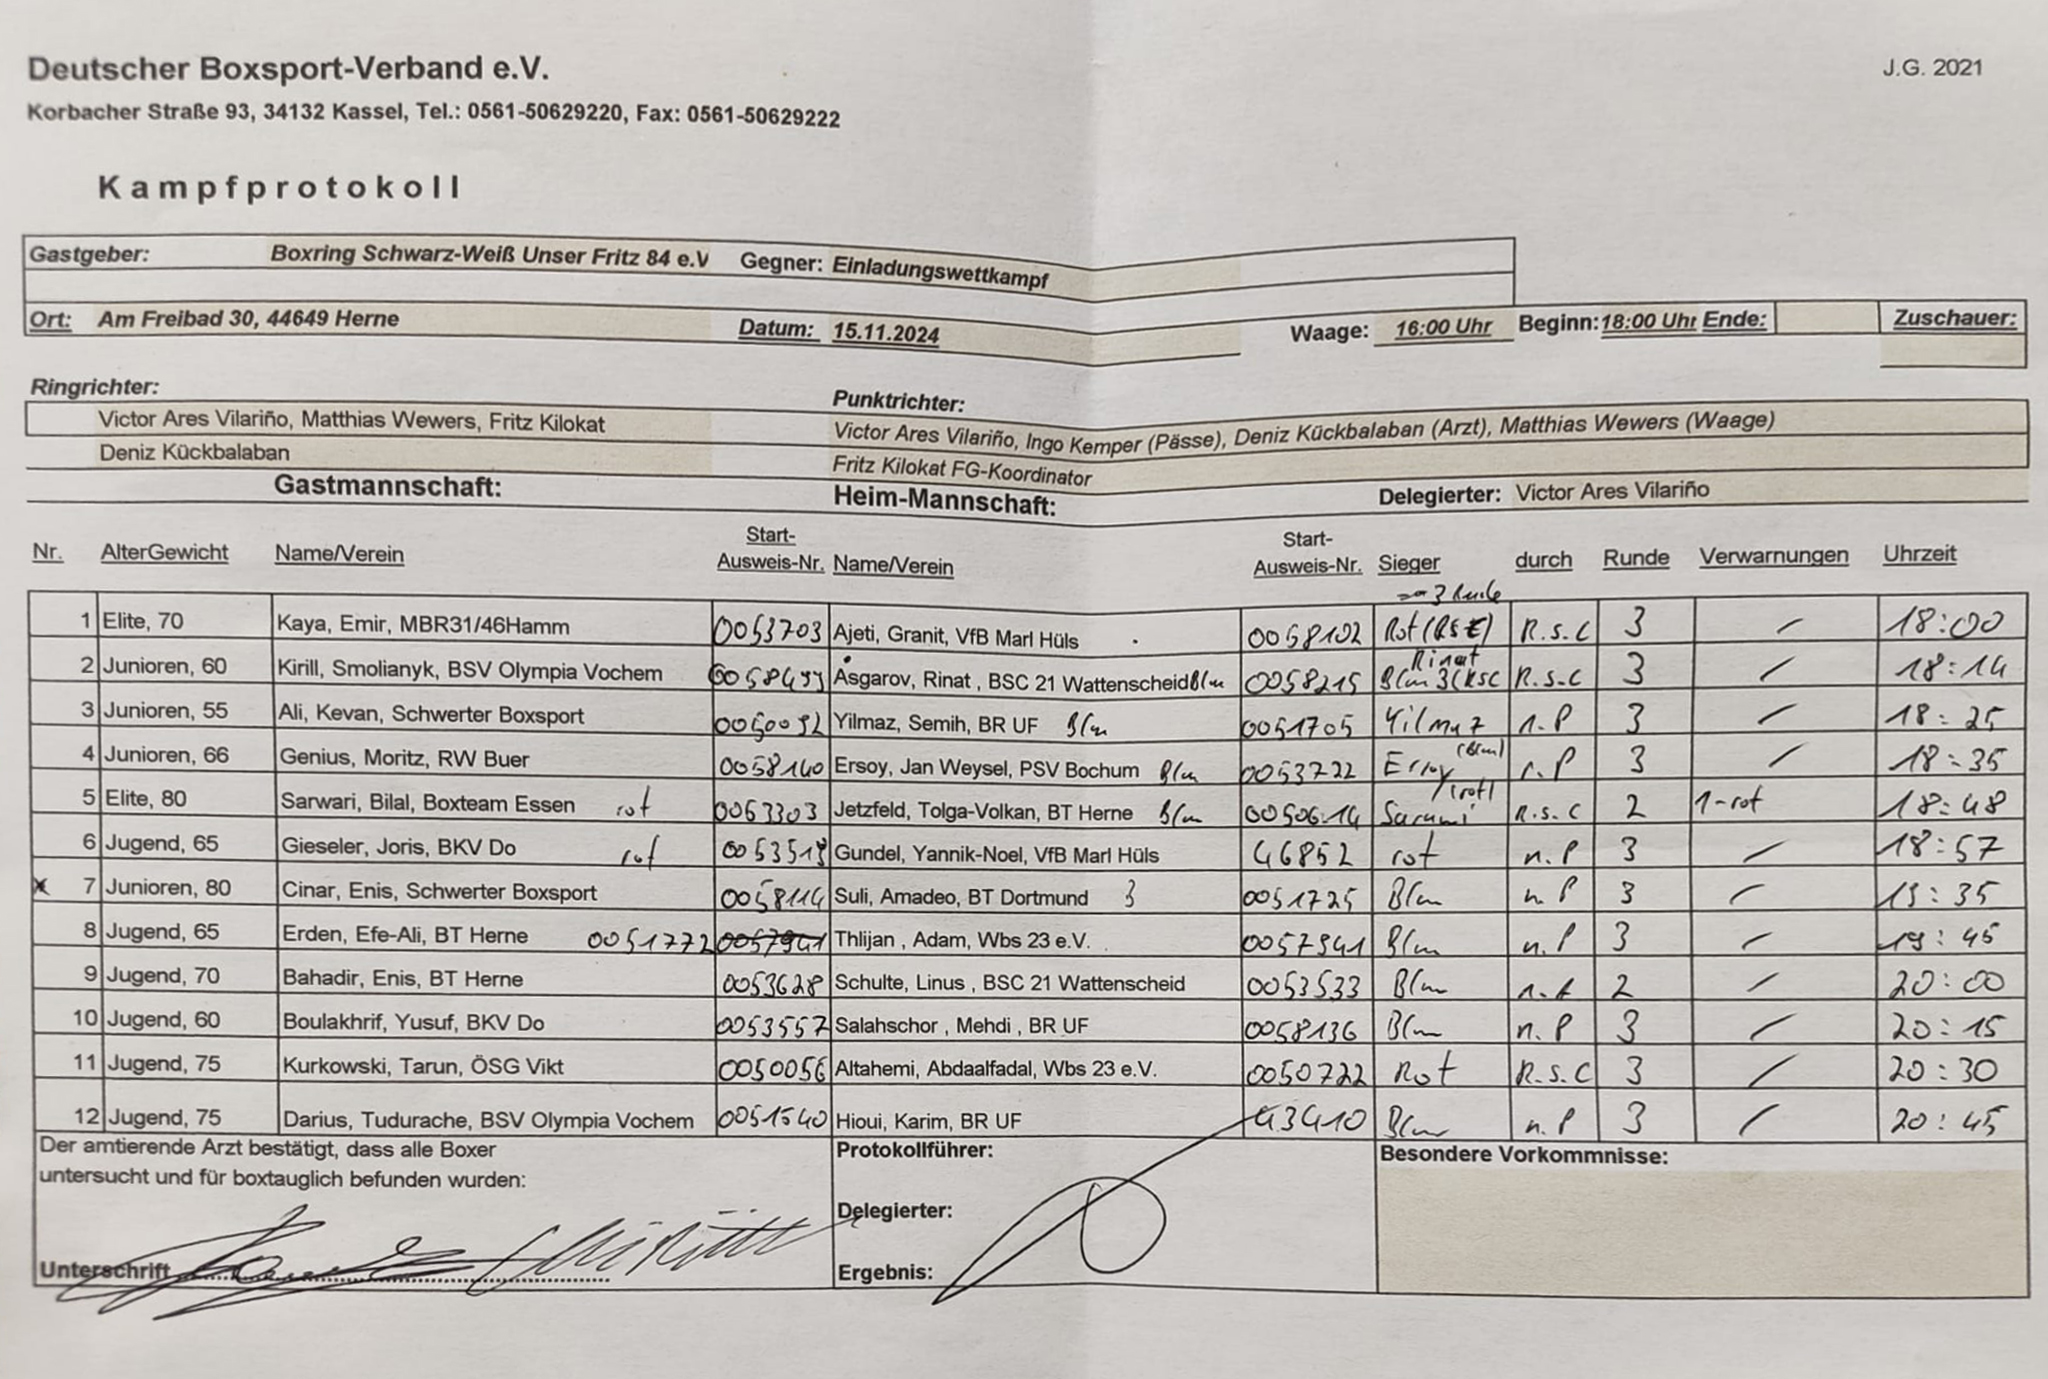 Deutscher Boxsport-Verband e.V.
J.G. 2021
Korbacher Straße 93, 34132 Kassel, Tel.: 0561-50629220, Fax: 0561-50629222
Kampfprotokoll
Gastgeber: Boxring Schwarz-Weiß Unser Fritz 84 e.V Gegner: Einladungswettkampf
Ort: Am Freibad 30, 44649 Herne Datum: 15.11.2024 Waage: 16:00 Uhr Beginn: 18:00 Uhr Ende: Zuschauer:
Ringrichter: Punktrichter:
Victor Ares Vilariño, Matthias Wewers, Fritz Kilokat Victor Ares Vilariño, Ingo Kemper (Pässe), Deniz Kückbalaban (Arzt), Matthias Wewers (Waage)
Deniz Kückbalaban Fritz Kilokat FG-Koordinator
Gastmannschaft: Heim-Mannschaft: Delegierter: Victor Ares Vilariño
Nr. AlterGewicht Name/Verein Start-Ausweis-Nr. Name/Verein Start-Ausweis-Nr. Sieger durch Runde Verwarnungen Uhrzeit
1 Elite, 70 Kaya, Emir, MBR31/46Hamm 0053703 Ajeti, Granit, VfB Marl Hüls 0058102 Rot R.s.C 3 / 18:00
2 Junioren, 60 Kirill, Smolianyk, BSV Olympia Vochem Asgarov, Rinat , BSC 21 Wattenscheid Blau 0058215 Rinat Blau R.s.C 3 / 18:14
3 Junioren, 55 Ali, Kevan, Schwerter Boxsport 0050092 Yilmaz, Semih, BR UF Blau 0051705 Yilmaz n.P 3 / 18:25
4 Junioren, 66 Genius, Moritz, RW Buer 0058140 Ersoy, Jan Weysel, PSV Bochum Blau 0053722 Ersoy (Blau) n.P 3 / 18:35
5 Elite, 80 Sarwari, Bilal, Boxteam Essen rot 0053303 Jetzfeld, Tolga-Volkan, BT Herne Blau 0050614 (rot) R.s.C 2 1-rot 18:48
6 Jugend, 65 Gieseler, Joris, BKV Do rot Gundel, Yannik-Noel, VfB Marl Hüls 46852 rot n.P 3 / 18:57
x 7 Junioren, 80 Cinar, Enis, Schwerter Boxsport 0058114 Suli, Amadeo, BT Dortmund 0051725 Blau n.P 3 / 19:35
8 Jugend, 65 Erden, Efe-Ali, BT Herne 0051772 0057941 Thlijan , Adam, Wbs 23 e.V. 0057941 Blau n.P 3 / 19:45
9 Jugend, 70 Bahadir, Enis, BT Herne 0053628 Schulte, Linus , BSC 21 Wattenscheid 0053533 Blau 2 / 20:00
10 Jugend, 60 Boulakhrif, Yusuf, BKV Do 0053557 Salahschor , Mehdi , BR UF 0058136 Blau n.P 3 / 20:15
11 Jugend, 75 Kurkowski, Tarun, ÖSG Vikt 0050056 Altahemi, Abdaalfadal, Wbs 23 e.V. 0050722 Rot R.s.C 3 / 20:30
12 Jugend, 75 Darius, Tudurache, BSV Olympia Vochem 0051540 Hioui, Karim, BR UF 43410 Blau n.P 3 / 20:45
Der amtierende Arzt bestätigt, dass alle Boxer
untersucht und für boxtauglich befunden wurden:
Unterschrift
Protokollführer:
Delegierter:
Ergebnis:
Besondere Vorkommnisse: